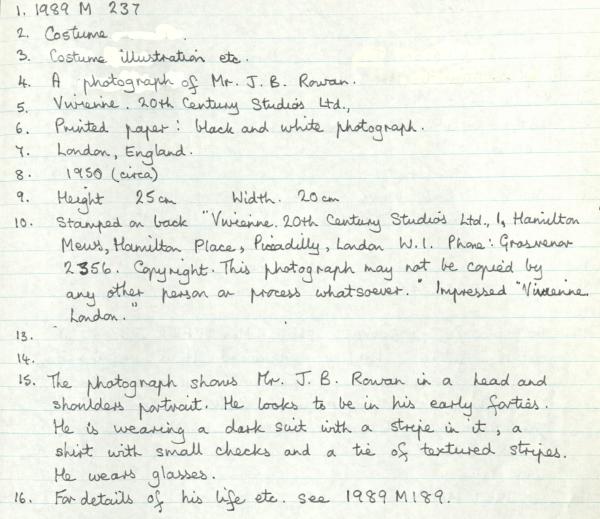 1. 1989 M 237
2. Costume .
3. Costume illustration etc.
4. A photograph of Mr. J. B. Rowan.
5. Vivienne. 20th Century Studios Ltd.,
6. Printed paper: black and white photograph.
7. London, England.
8. 1950 (circa)
9. Height 25cm Width. 20cm
10. Stamped on back "Vivienne. 20th Century Studios Ltd., 1, Hamilton
Mews, Hamilton Place, Piccadilly, London W.1. Phone: Grosvenor
2356. Copyright. This photograph may not be copied by
any other person or process whatsoever." Impressed "Vivienne
London."
13.
14.
15. The photograph shows Mr. J. B. Rowan in a head and
shoulders portrait. He looks to be in his early forties.
He is wearing a dark suit with a stripe in it, a
shirt with small checks and a tie of textured stripes.
He wears glasses.
16. For details of his life etc. see 1989 M189.